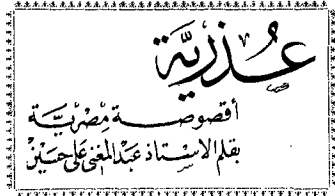 عُذريَّة
أقصوصة مِصْريَّة
بقلم الاستاذ عبد المغنى على حسين